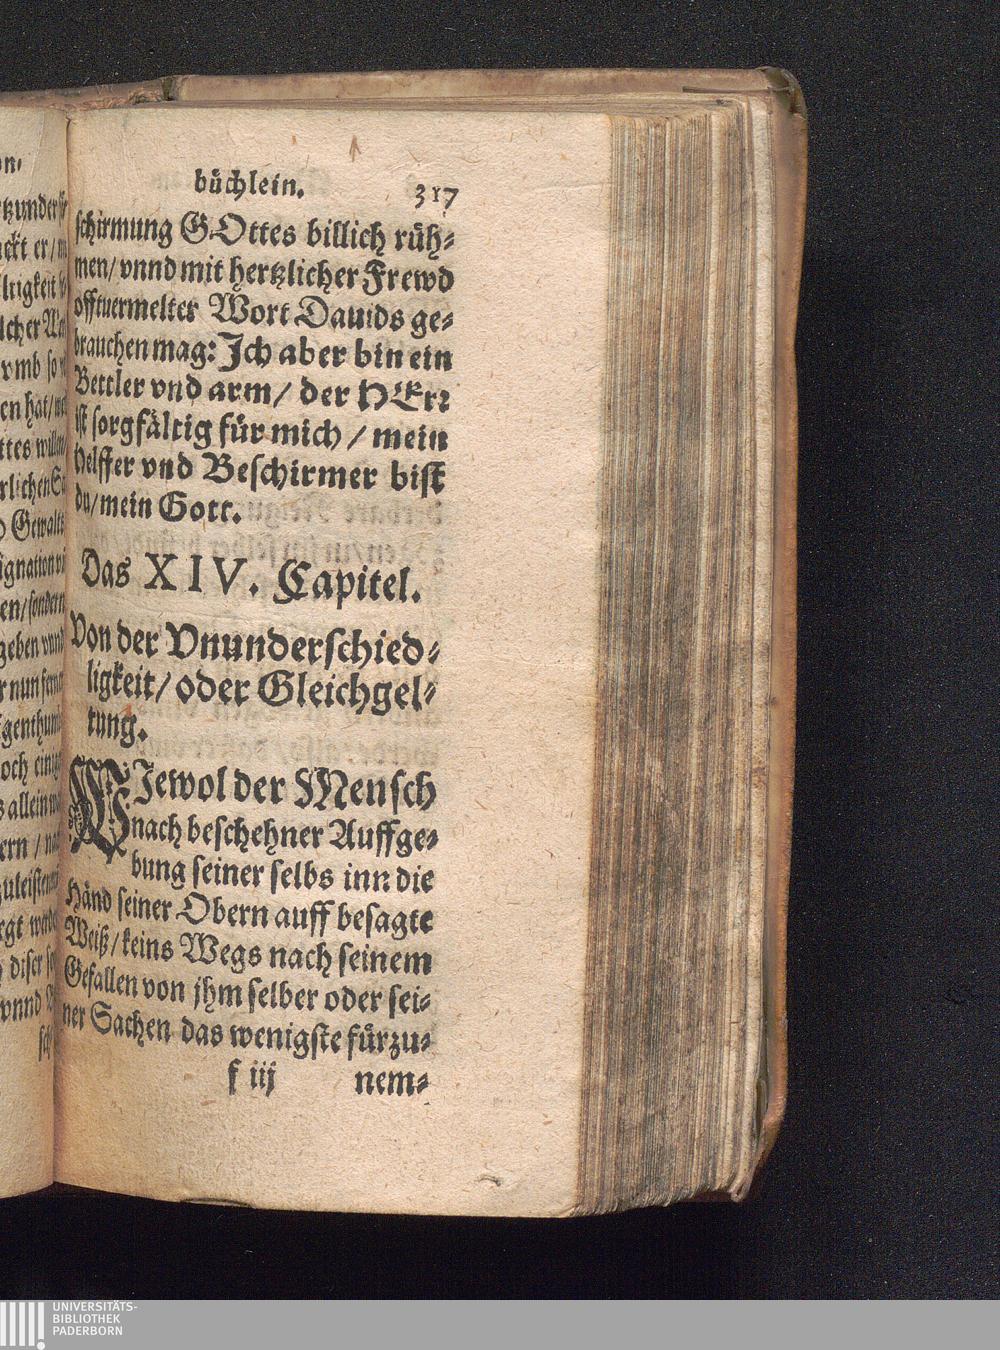 büchlein. 317
schirmung GOttes billich rüh-
men/ vnnd mit hertzlicher Frewd
offtuermelter Wort Dauids ge-
brauchen mag: Ich aber bin ein
Bettler vnd arm/ der HErr
ist sorgfältig für mich/ mein
Helffer vnd Beschirmer bist
du/ mein Gott.
Das XIV. Capitel.
Von der Vnunderschied-
ligkeit/ oder Gleichgel-
tung.
WJewol der Mensch
nach beschehner Auffge-
bung seiner selbs inn die
Händ seiner Obern auff besagte
Weiß/ keins Wegs nach seinem
Gefallen von jhm selber oder sei-
ner Sachen das wenigste fürzu-
f iij nem-
UNIVERSITÄTS-
BIBLIOTHEK
PADERBORN